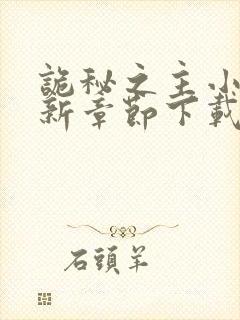 詭秘之主小
新章節下載
石頭羊